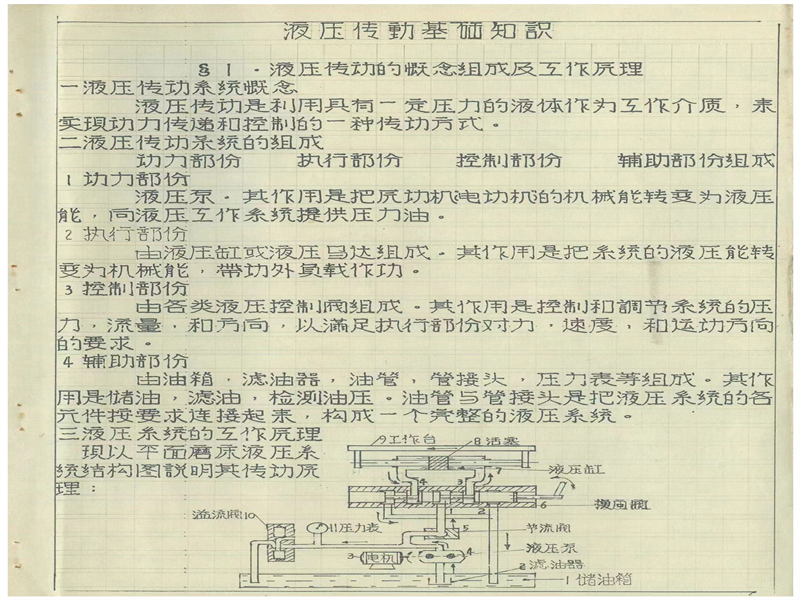 液压传動基础知識
§1.液压传动的概念组成及工作原理
一液压传动系统概念
液压传动是利用具有一定压力的液体作为工作介质,来
实现动力传递和控制的一种传动方式。
二液压传动系统的组成
动力部份 执行部份 控制部份 辅助部份组成
1 动力部份
液压泵.其作用是把原动机(电动机)的机械能转变为液压
能,向液压工作系统提供压力油。
2 执行部份
由液压缸或液压马达组成.其作用是把系统的液压能转
变为机械能,带动外负载作功。
3 控制部份
由各类液压控制阀组成.其作用是控制和調节系统的压
力,流量,和方向,以满足执行部份对力,速度,和运动方向
的要求。
4 辅助部份
由油箱,滤油器,油管,管接头,压力表等组成.其作
用是储油,滤油,检测油压。油管与管接头是把液压系统的各
元件按要求连接起来,构成一个完整的液压系统。
三液压系统的工作原理
现以平面磨床液压系
统结构图説明其传动原
理:
9工作台 8活塞
7
液压缸
4 3
6 换向阀
2
溢流阀10
11压力表
5 节流阀
3 电机 4 液压泵
2 滤油器
1储油箱